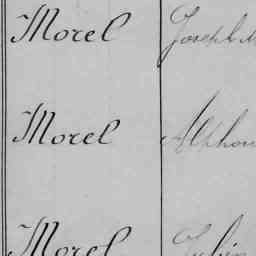 Morel Joseph M
Morel Alphon
Morel Julien